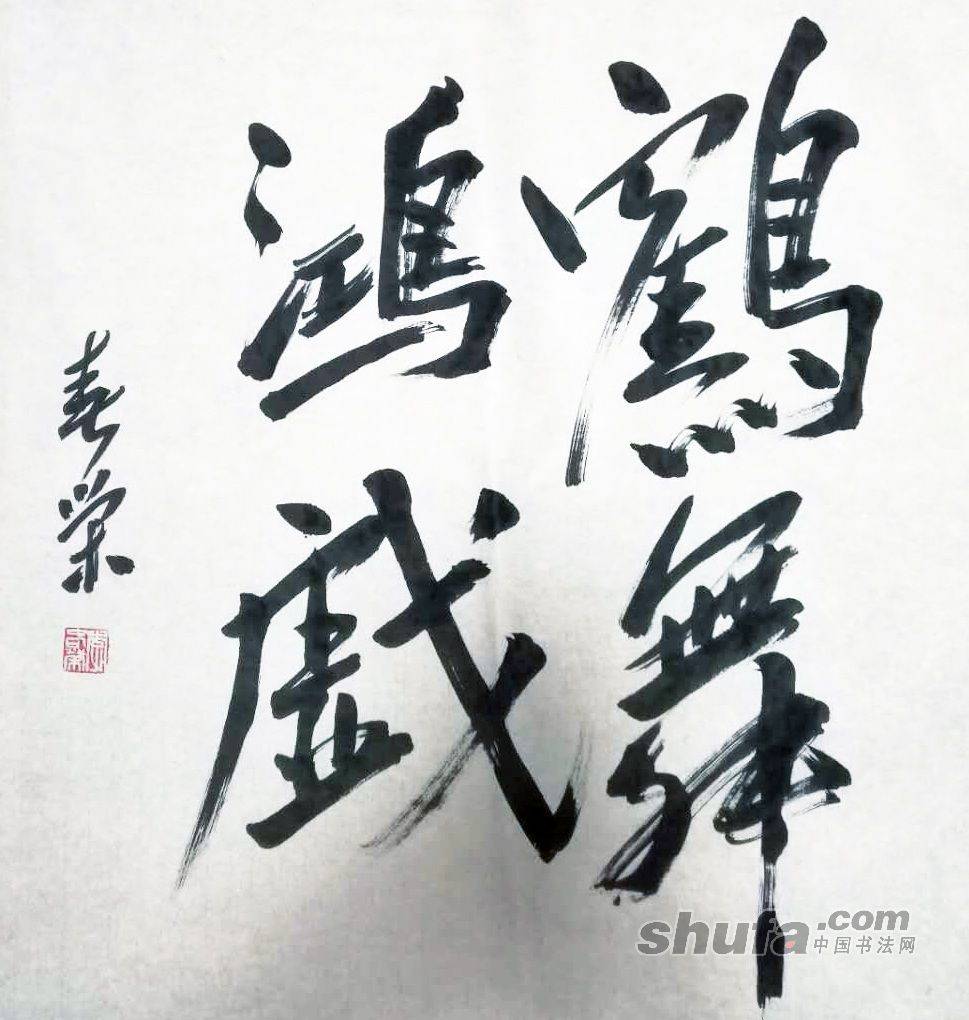 鶴舞
鴻戲
春榮
shufa.com
中国书法网